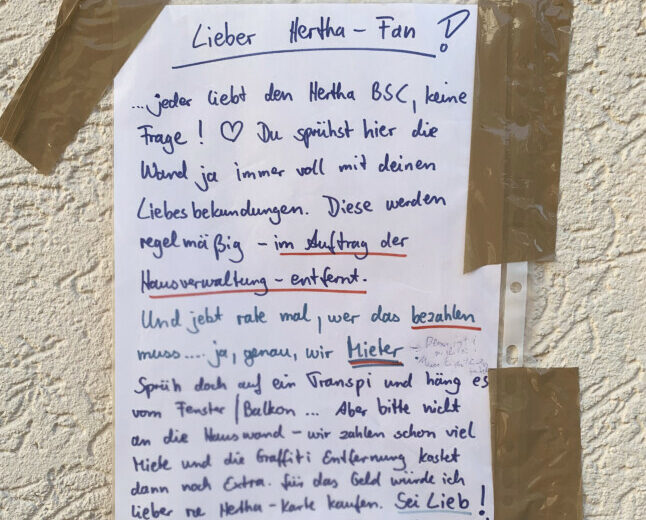 Lieber Hertha-Fan!
...jeder liebt den Hertha BSC, keine
Frage! ♡ Du sprühst hier die
Wand ja immer voll mit deinen
Liebesbekundungen. Diese werden
regelmäßig - im Auftrag der
Hausverwaltung - entfernt.
Und jetzt rate mal, wer das bezahlen
muss.... ja, genau, wir Mieter
Sprüh doch auf ein Transpi und häng es
vom Fenster/Balkon ... Aber bitte nicht
an die Hauswand - wir zahlen schon viel
Miete und die Graffiti Entfernung kostet
dann noch Extra. für das Geld würde ich
lieber ne Hertha-Karte kaufen. Sei Lieb!